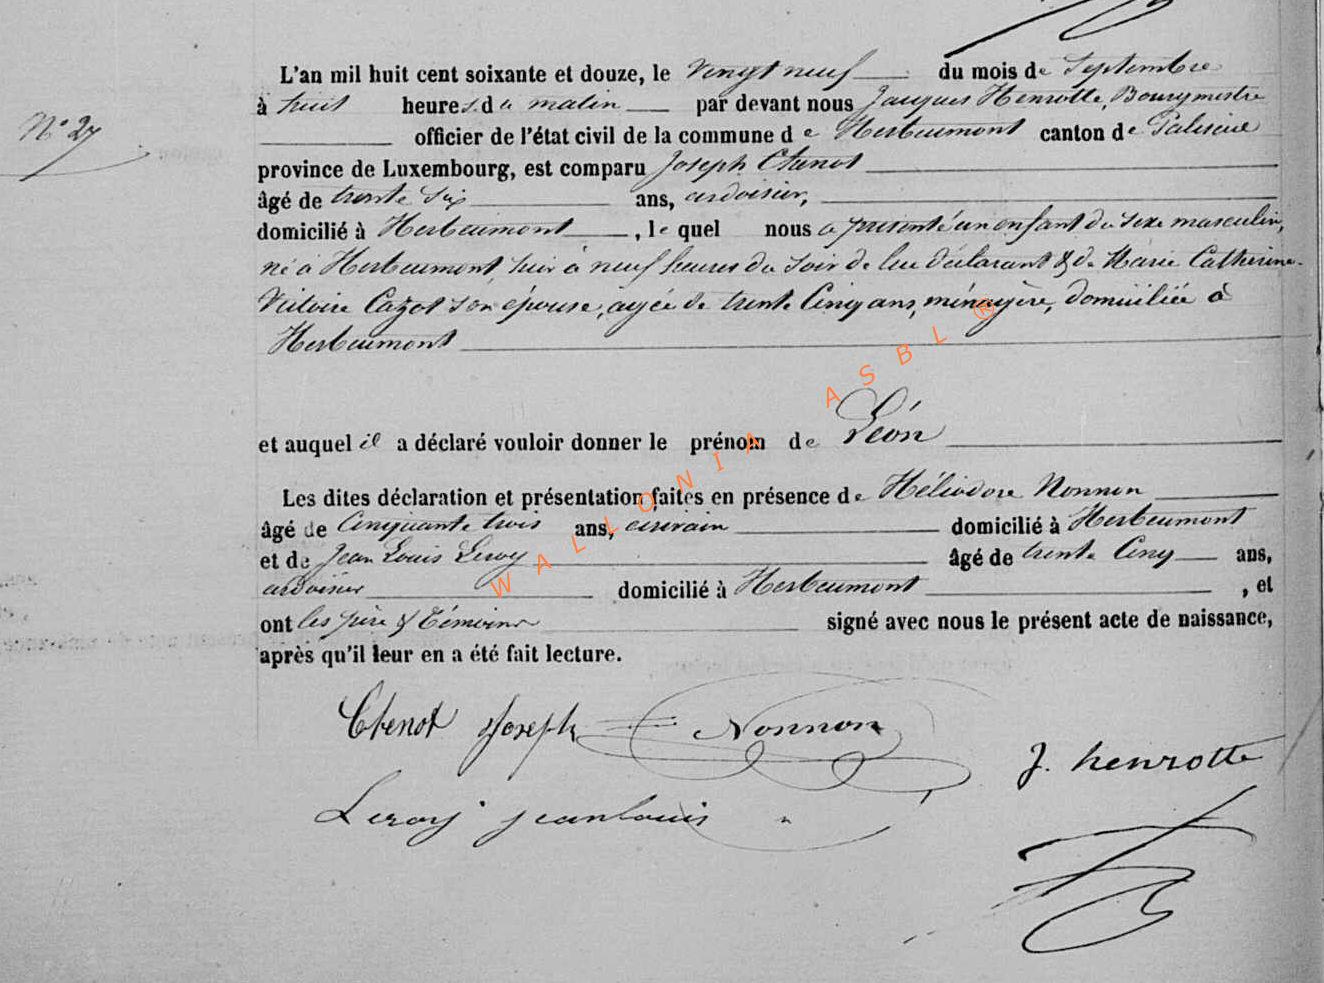 L'an mil huit cent soixante et douze, le vingt neuf du mois de Septembre
à huit heures du matin par devant nous Jacques Henrotte, Bourgmestre
N° 27
officier de l'état civil de la commune de Herbeumont canton de Paliseul
province de Luxembourg, est comparu Joseph Chenot
âgé de trente six ans, ardoisier,
domicilié à Herbeumont, le quel nous a présenté un enfant du sexe masculin,
né à Herbeumont hier à neuf heures du soir de lui déclarant & de Marie Catherine
Victoire Cazot son épouse, agée de trente cinq ans, ménagère, domiciliée à
Herbeumont
et auquel il a déclaré vouloir donner le prénom de Léon
Les dites déclaration et présentation faites en présence de Héliodore Nonnon
âgé de cinquante trois ans, écrivain domicilié à Herbeumont
et de Jean Louis Leroy âgé de trente cinq ans,
ardoisier domicilié à Herbeumont, et
ont les père & témoins signé avec nous le présent acte de naissance,
après qu'il leur en a été fait lecture.
Chenot Joseph Nonnon
J. henrotte
Leroy jean louis
WALLONIA ASBL ®